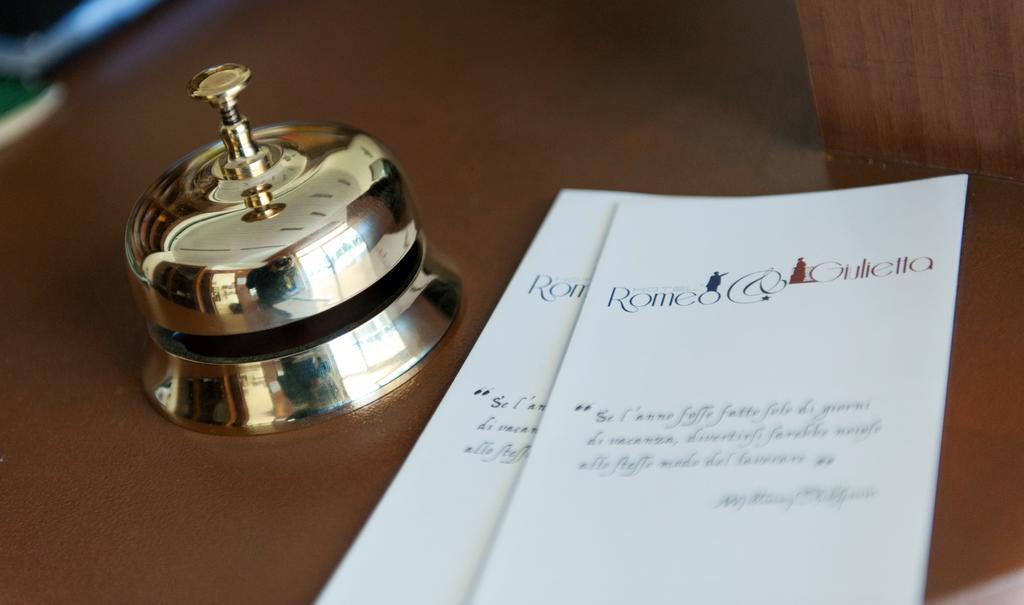 HOTEL
Romeo & Giulietta
“ Se l'anno fosse fatto solo di giorni
di vacanza, divertirsi sarebbe noioso
allo stesso modo del lavorare ”
HOTEL
Rom
“ Se l'an
di vacan
allo stess